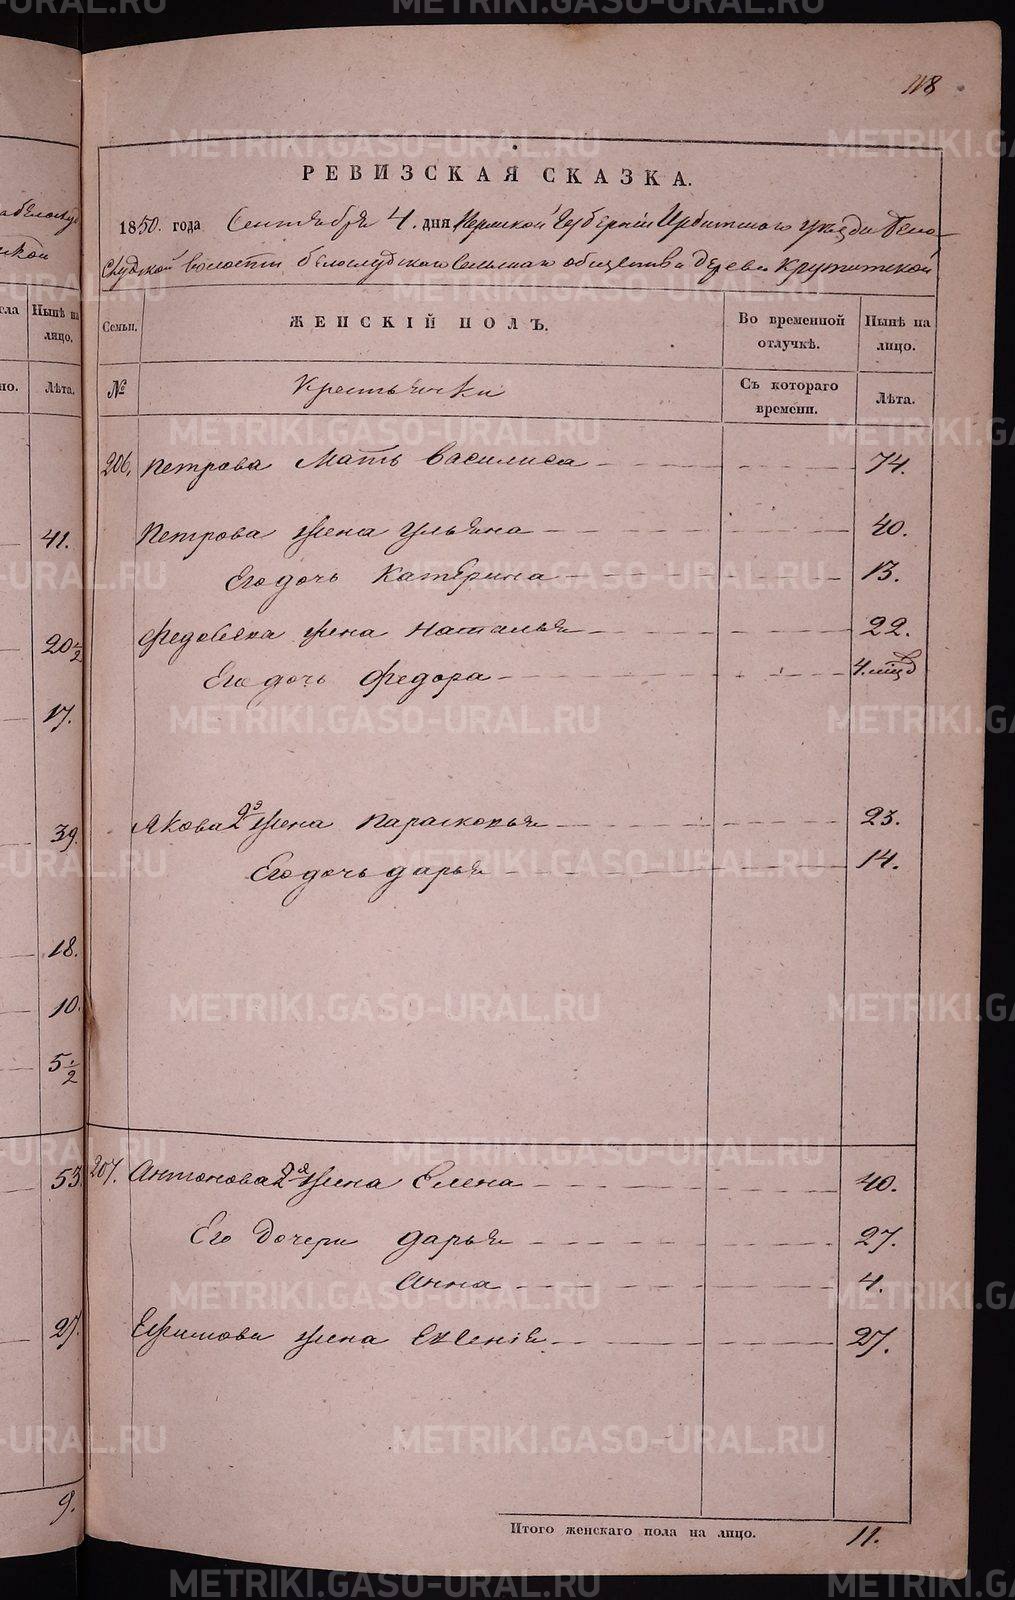 118
РЕВИЗСКАЯ СКАЗКА.
1850. года Сентября 4. дня Пермской Губернии Ирбитского уезда Бело-
слудской волости белослудского сельскаго общества деревни Крутитской
Семьи.
ЖЕНСКІЙ ПОЛЪ.
Во временной отлучкѣ.
Нынѣ на лицо.
№
Крестьянки
Съ котораго времени.
Лѣта.
206, Петрова Мать Василиса 74.
Петрова жена Ульяна 40.
Его дочь Катерина 13.
Федосеева жена Наталья 22.
Его дочь Федора 4.
Якова 2я жена Парасковья 23.
Его дочь дарья 14.
207. Антонова 2я жена Елена 40.
Его Дочери дарья 27.
Анна 4.
Ефимова жена Евгенія 27.
Итого женскаго пола на лицо. 11.
Нынѣ на лицо.
Лѣта.
41.
20 1/2
17.
39.
18.
10.
5 1/2
53.
27.
9.
METRIKI.GASO-URAL.RU